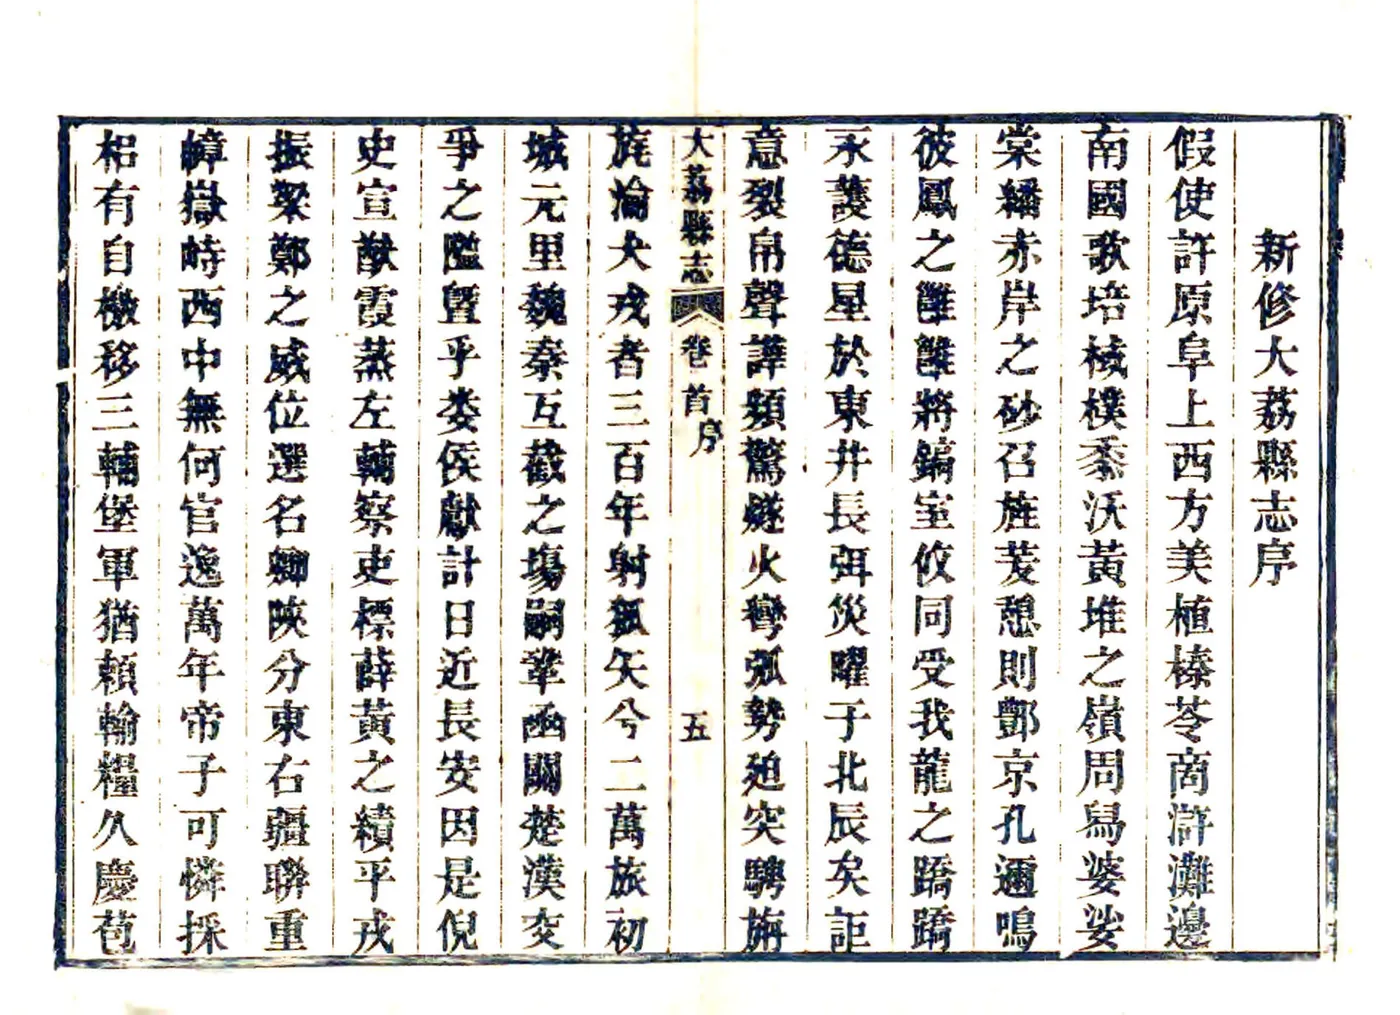 新修大荔縣志序
假使許原阜上西方美植榛苓商滸灘邊
南國歌培棫樸黍沃黃堆之嶺周舄婆娑
棠繙赤岸之砂召旌茇憩則酆京孔邇鳴
彼鳳之雝雝將鎬室攸同受我龍之蹻蹻
永護德星於東井長弭災曜于北辰矣詎
意裂帛聲譁頻驚燧火彎弧勢廹突騁旃
大荔縣志
卷首
序
五
旄淪犬戎者三百年射狐矢兮二萬旅初
城元里魏秦互截之塲嗣鞏函關楚漢交
爭之隘曁乎婁侯獻計日近長安因是倪
史宣猷霞蒸左輔察吏標薛黃之績平戎
振梁鄭之威位選名卿陝分東右疆聯重
嶂嶽峙西中無何官逸萬年帝子可憐採
梠有自檄移三輔堡軍猶賴輸糧久慶苞